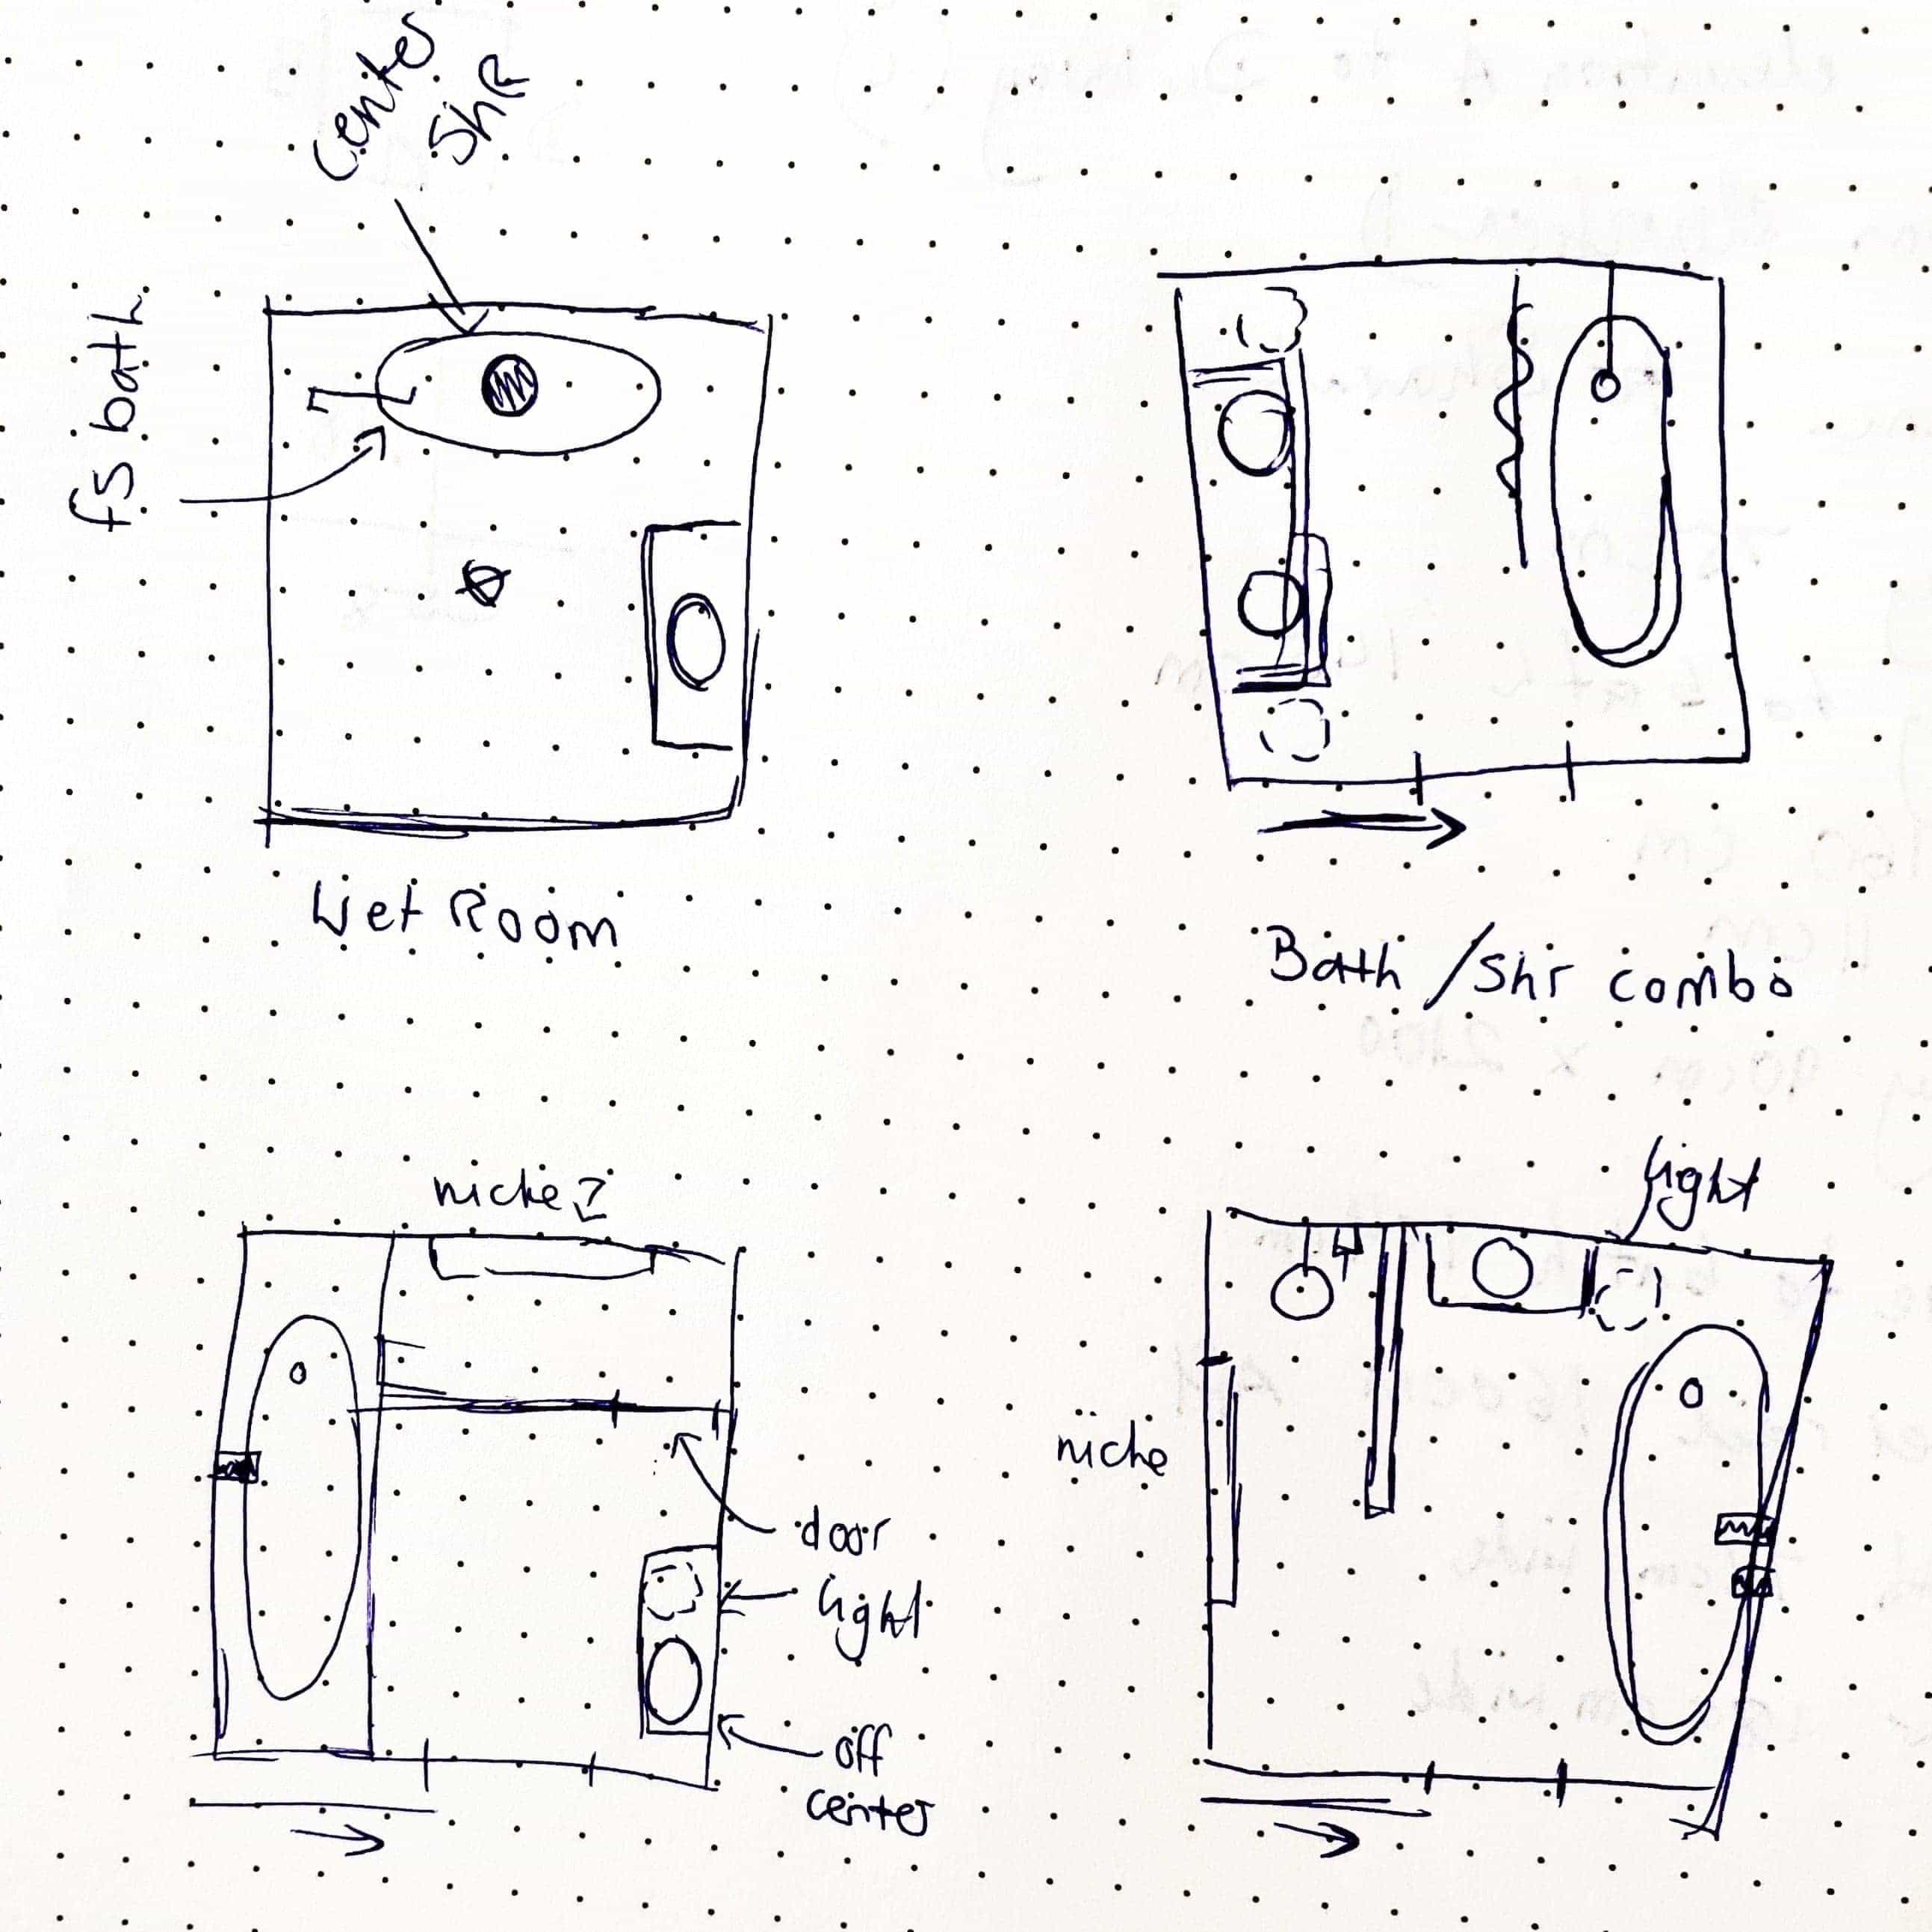 Center
Shr
fs bath
Wet Room
Bath / Shr combo
niche?
door
light
off
center
light
niche